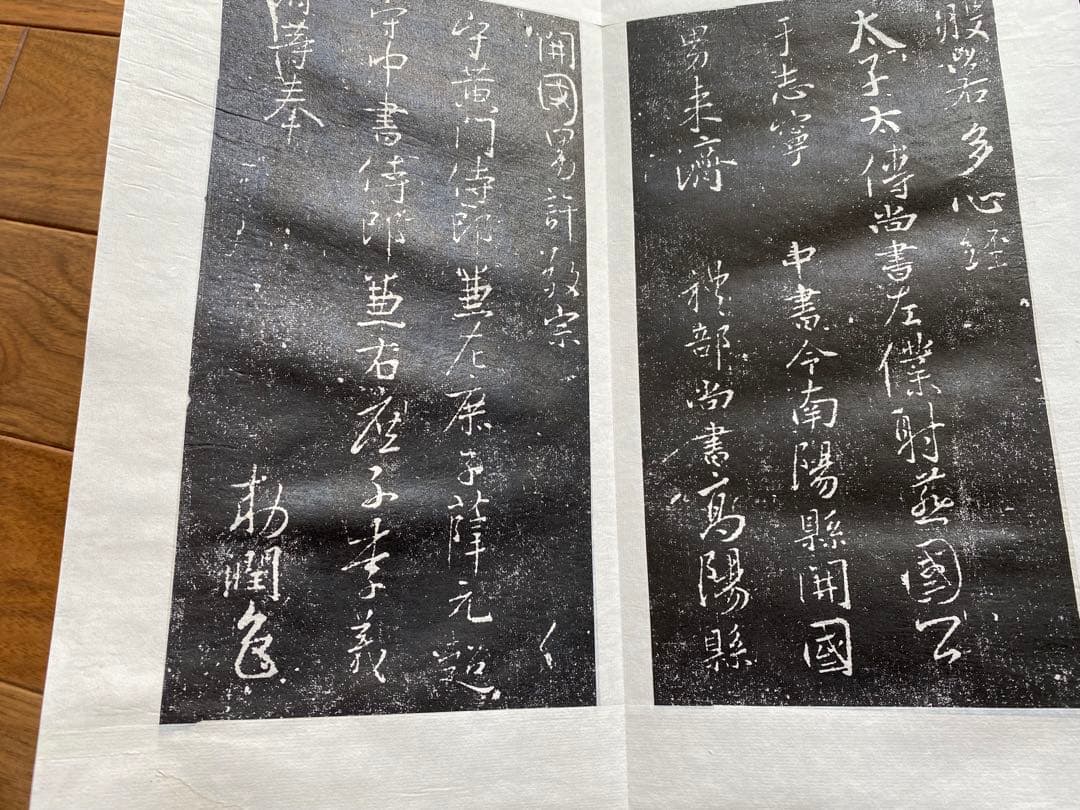 般若多心經
太子太傅尚書左僕射燕國公
于志寧 中書令南陽縣開國
男来濟 禮部尚書高陽縣
開國男許敬宗
守黃門侍郎兼左庶子薛元超
守中書侍郎兼右庶子李義
府等奉 勑潤色